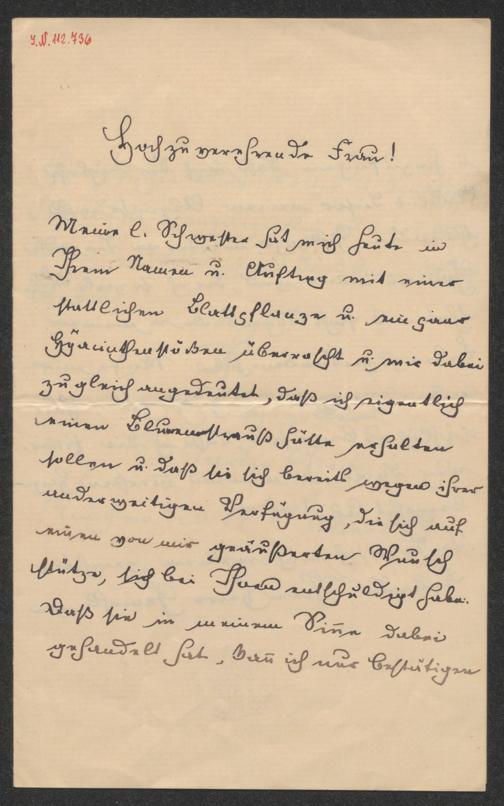 I.N. 112.736
Hochzuverehrende Frau!
Meine l. Schwester hat mich heute in
Ihrem Namen u. Auftrag mit einer
stattlichen Blattpflanze u. ein paar
Hyacinthenstößen überrascht u. mir dabei
zugleich angedeutet, daß ich eigentlich
einen Blumenstrauß hätte erhalten
sollen u. daß sie sich bereits wegen ihrer
anderweitigen Verfügung, die sich auf
einen von mir geäußerten Wunsch
stütze, sich bei Ihnen entschuldigt habe.
Daß sie in meinem Sinne dabei
gehandelt hat, kann ich nur bestätigen